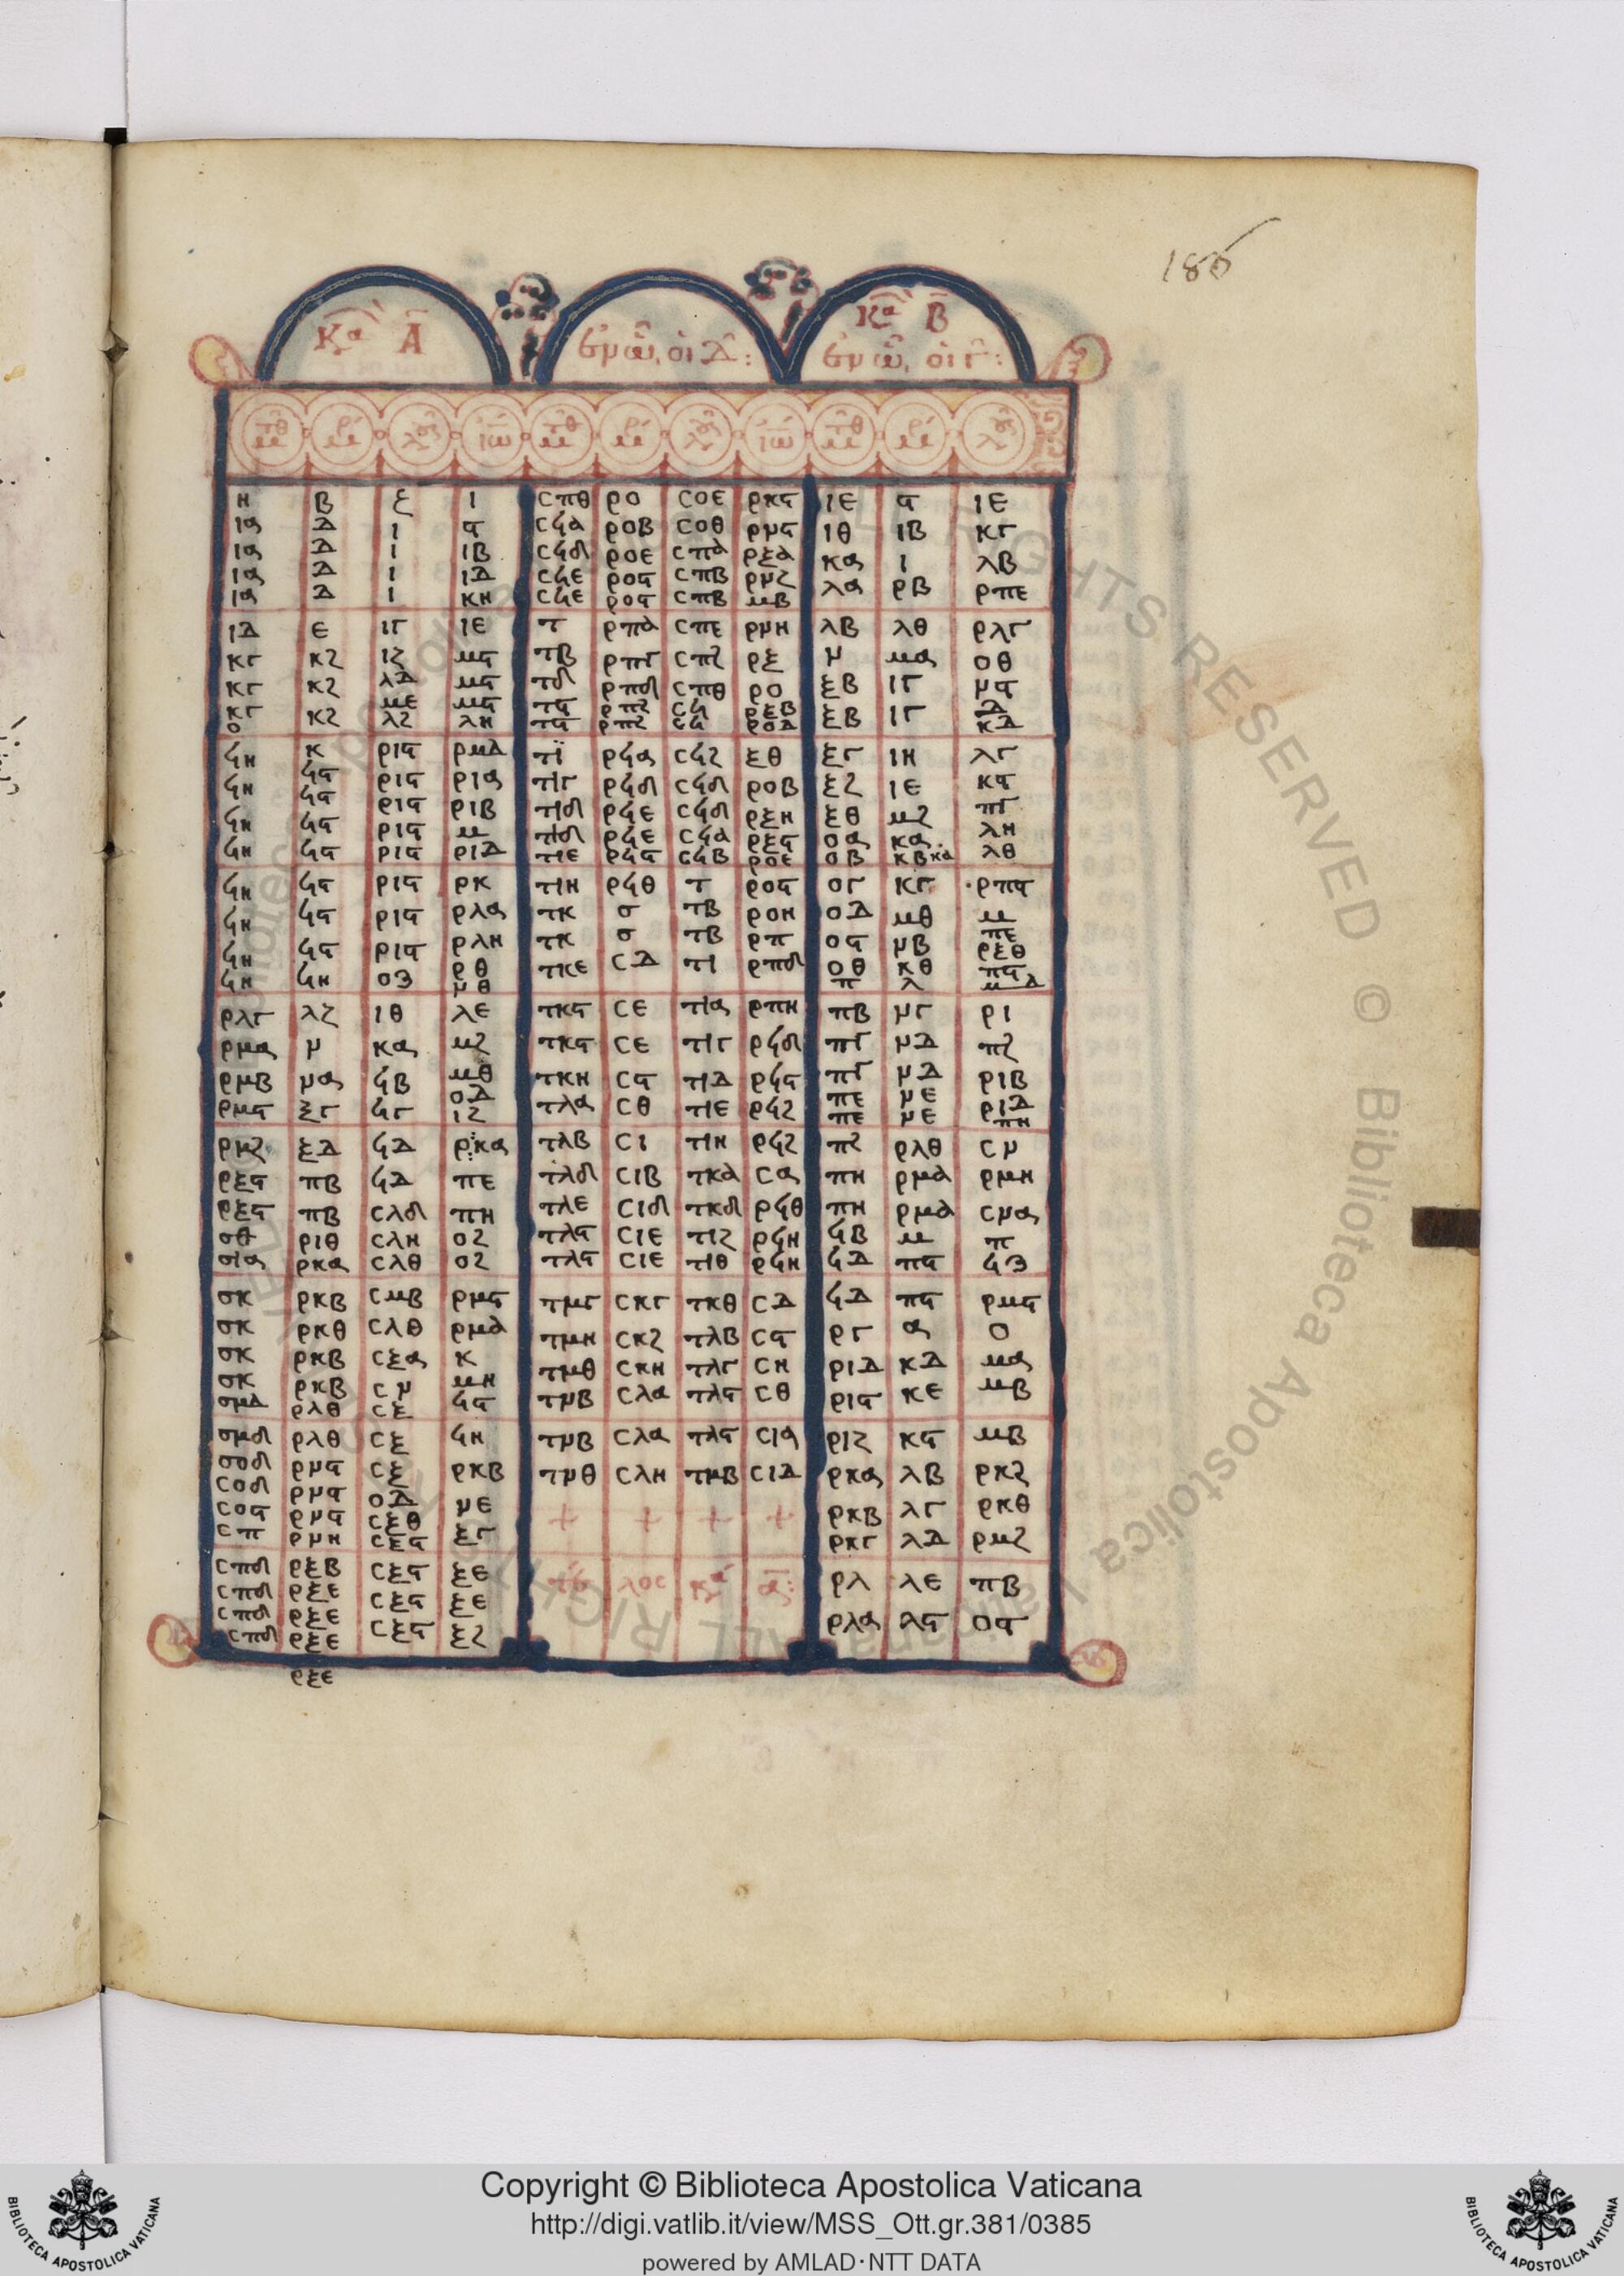 186
Κα Α
Κα Β
ἐν ᾧ οἱ Δ:
ἐν ᾧ οἱ Γ:
μτθ μρ λου ιω μτθ μρ λου ιω μτθ μρ λου
η β ξ ι σπθ ρο σοε ρκϛ ιε ϛ ιε
ια δ ι ϛ σϟα ροβ σοθ ρμϛ ιθ ιβ κγ
ια δ ι ιβ σϟδ ροε σπα ρξα κα ι λβ
ια δ ι ιδ σϟε ροϛ σπβ ρμζ λα ρβ ρπε
ια δ ι κη σϟε ροϛ σπβ μβ
ιδ ε ιγ ιε τ ρπα σπε ρμη λβ λθ ρλγ
κγ κζ ιζ μϛ τβ ρπγ σπζ ρξ μ μα οθ
κγ κζ λδ μϛ τδ ρπδ σπθ ρο ξβ ιγ μϛ
κγ κζ με μϛ τϛ ρπζ σϟ ρξβ ξβ ιγ κδ
ο λζ λη τϛ ρπζ ροδ
ϟη κ ριϛ ρμδ τι ρϟα σϟζ ξθ ξγ ιη λγ
ϟη ϟϛ ριϛ ρια τιγ ρϟδ σϟδ ροβ ξζ ιε κϛ
ϟη ϟϛ ριϛ ριβ τιδ ρϟε σϟδ ρξη ξθ μζ πγ
ριϛ μ τιδ ρϟε σϟα ρξϛ οα κα λη
ϟη ϟϛ ριϛ ριδ τιε ρϟϛ σϟβ ροε οβ κβ κα λθ
ϟη ϟϛ ριϛ ρκ τιη ρϟθ τ ροϛ ογ κγ ρπϛ
ϟη ϟϛ ριϛ ρλα τκ σ τβ ροη οδ μθ μ
ϟη ϟϛ ριϛ ρλη τκ σ τβ ρπ οϛ μβ πε
ϟη ϟη ρθ τκε σδ τι ρπδ οθ κθ ρξθ
μθ π λ πϛ
μδ
ρλγ λζ ιθ λε τκϛ σε τια ρπη πβ μγ ρι
ρμα μ κα μζ τκϛ σε τιγ ρϟδ πγ μδ πζ
ρμβ μα ϟβ μθ τκη σϛ τιδ ρϟϛ πγ μδ ριβ
ρμϛ ξγ ϟγ οδ τλα σθ τιε ρϟζ πε με ριδ
ιζ πε με πη
ρμζ ξδ ϟδ ρκα τλβ σι τιη ρϟζ πζ ρλθ σμ
ρξϛ πβ ϟδ πε τλδ σιβ τκα σα πη ρμα ρμη
ρξϛ πβ σλδ πη τλε σιδ τκδ ρϟθ πη ρμα σμα
σθ ριθ σλη οζ τλϛ σιε τιζ ρϟη ϟβ μ π
σια ρκα σλθ οζ τλϛ σιε τιθ ρϟη ϟδ πϛ
σκ ρκβ σμβ ρμϛ τμγ σκγ τκθ σδ ϟδ πϛ ρμϛ
σκ ρκθ σλθ ρμα τμη σκζ τλβ σϛ ργ α ο
σκ ρκβ σξα κ τμθ σκη τλγ ση ριδ κδ μα
σκ ρκβ σμ μη τμβ σλα τλϛ σθ ριϛ κε μβ
σμδ ρλθ σξ ϟϛ
σμδ ρλθ σξ ϟη τμβ σλα τλϛ σια ριζ κϛ μβ
σοδ ρμϛ σξ ρκβ τμθ σλη τμβ σιδ ρκα λβ ρκζ
σοδ ρμϛ οδ με + + + + ρκβ λγ ρκθ
σοϛ ρμϛ σξθ ξγ ρκγ λδ ρμζ
σπ ρμη σξϛ
σπδ ρξβ σξϛ ξε τέλος κα α: ρλ λε πβ
σπδ ρξε σξϛ ξε ρλα λϛ οϛ
σπδ ρξε σξϛ ξζ
σπδ ρξε
ρξε
Copyright © Biblioteca Apostolica Vaticana
http://digi.vatlib.it/view/MSS_Ott.gr.381/0385
powered by AMLAD·NTT DATA
BIBLIOTECA APOSTOLICA VATICANA
BIBLIOTECA APOSTOLICA VATICANA